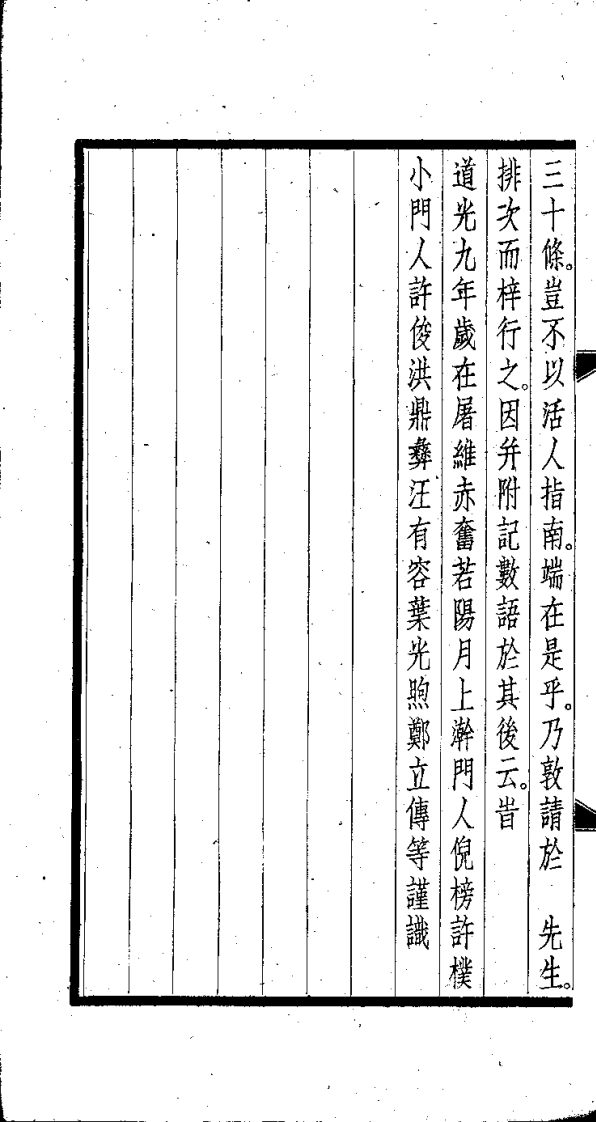 三十條。豈不以活人指南。端在是乎。乃敦請於　先生。
排次而梓行之。因并附記數語於其後云。旹
道光九年歲在屠維赤奮若陽月上澣門人倪榜許樸
小門人許俊洪鼎彝汪有容葉光煦鄭立傳等謹識